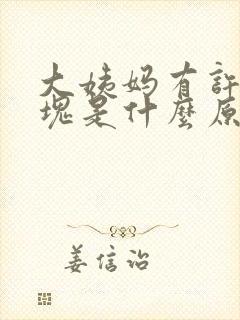 大姨妈有許
塊是什麼原
姜信治